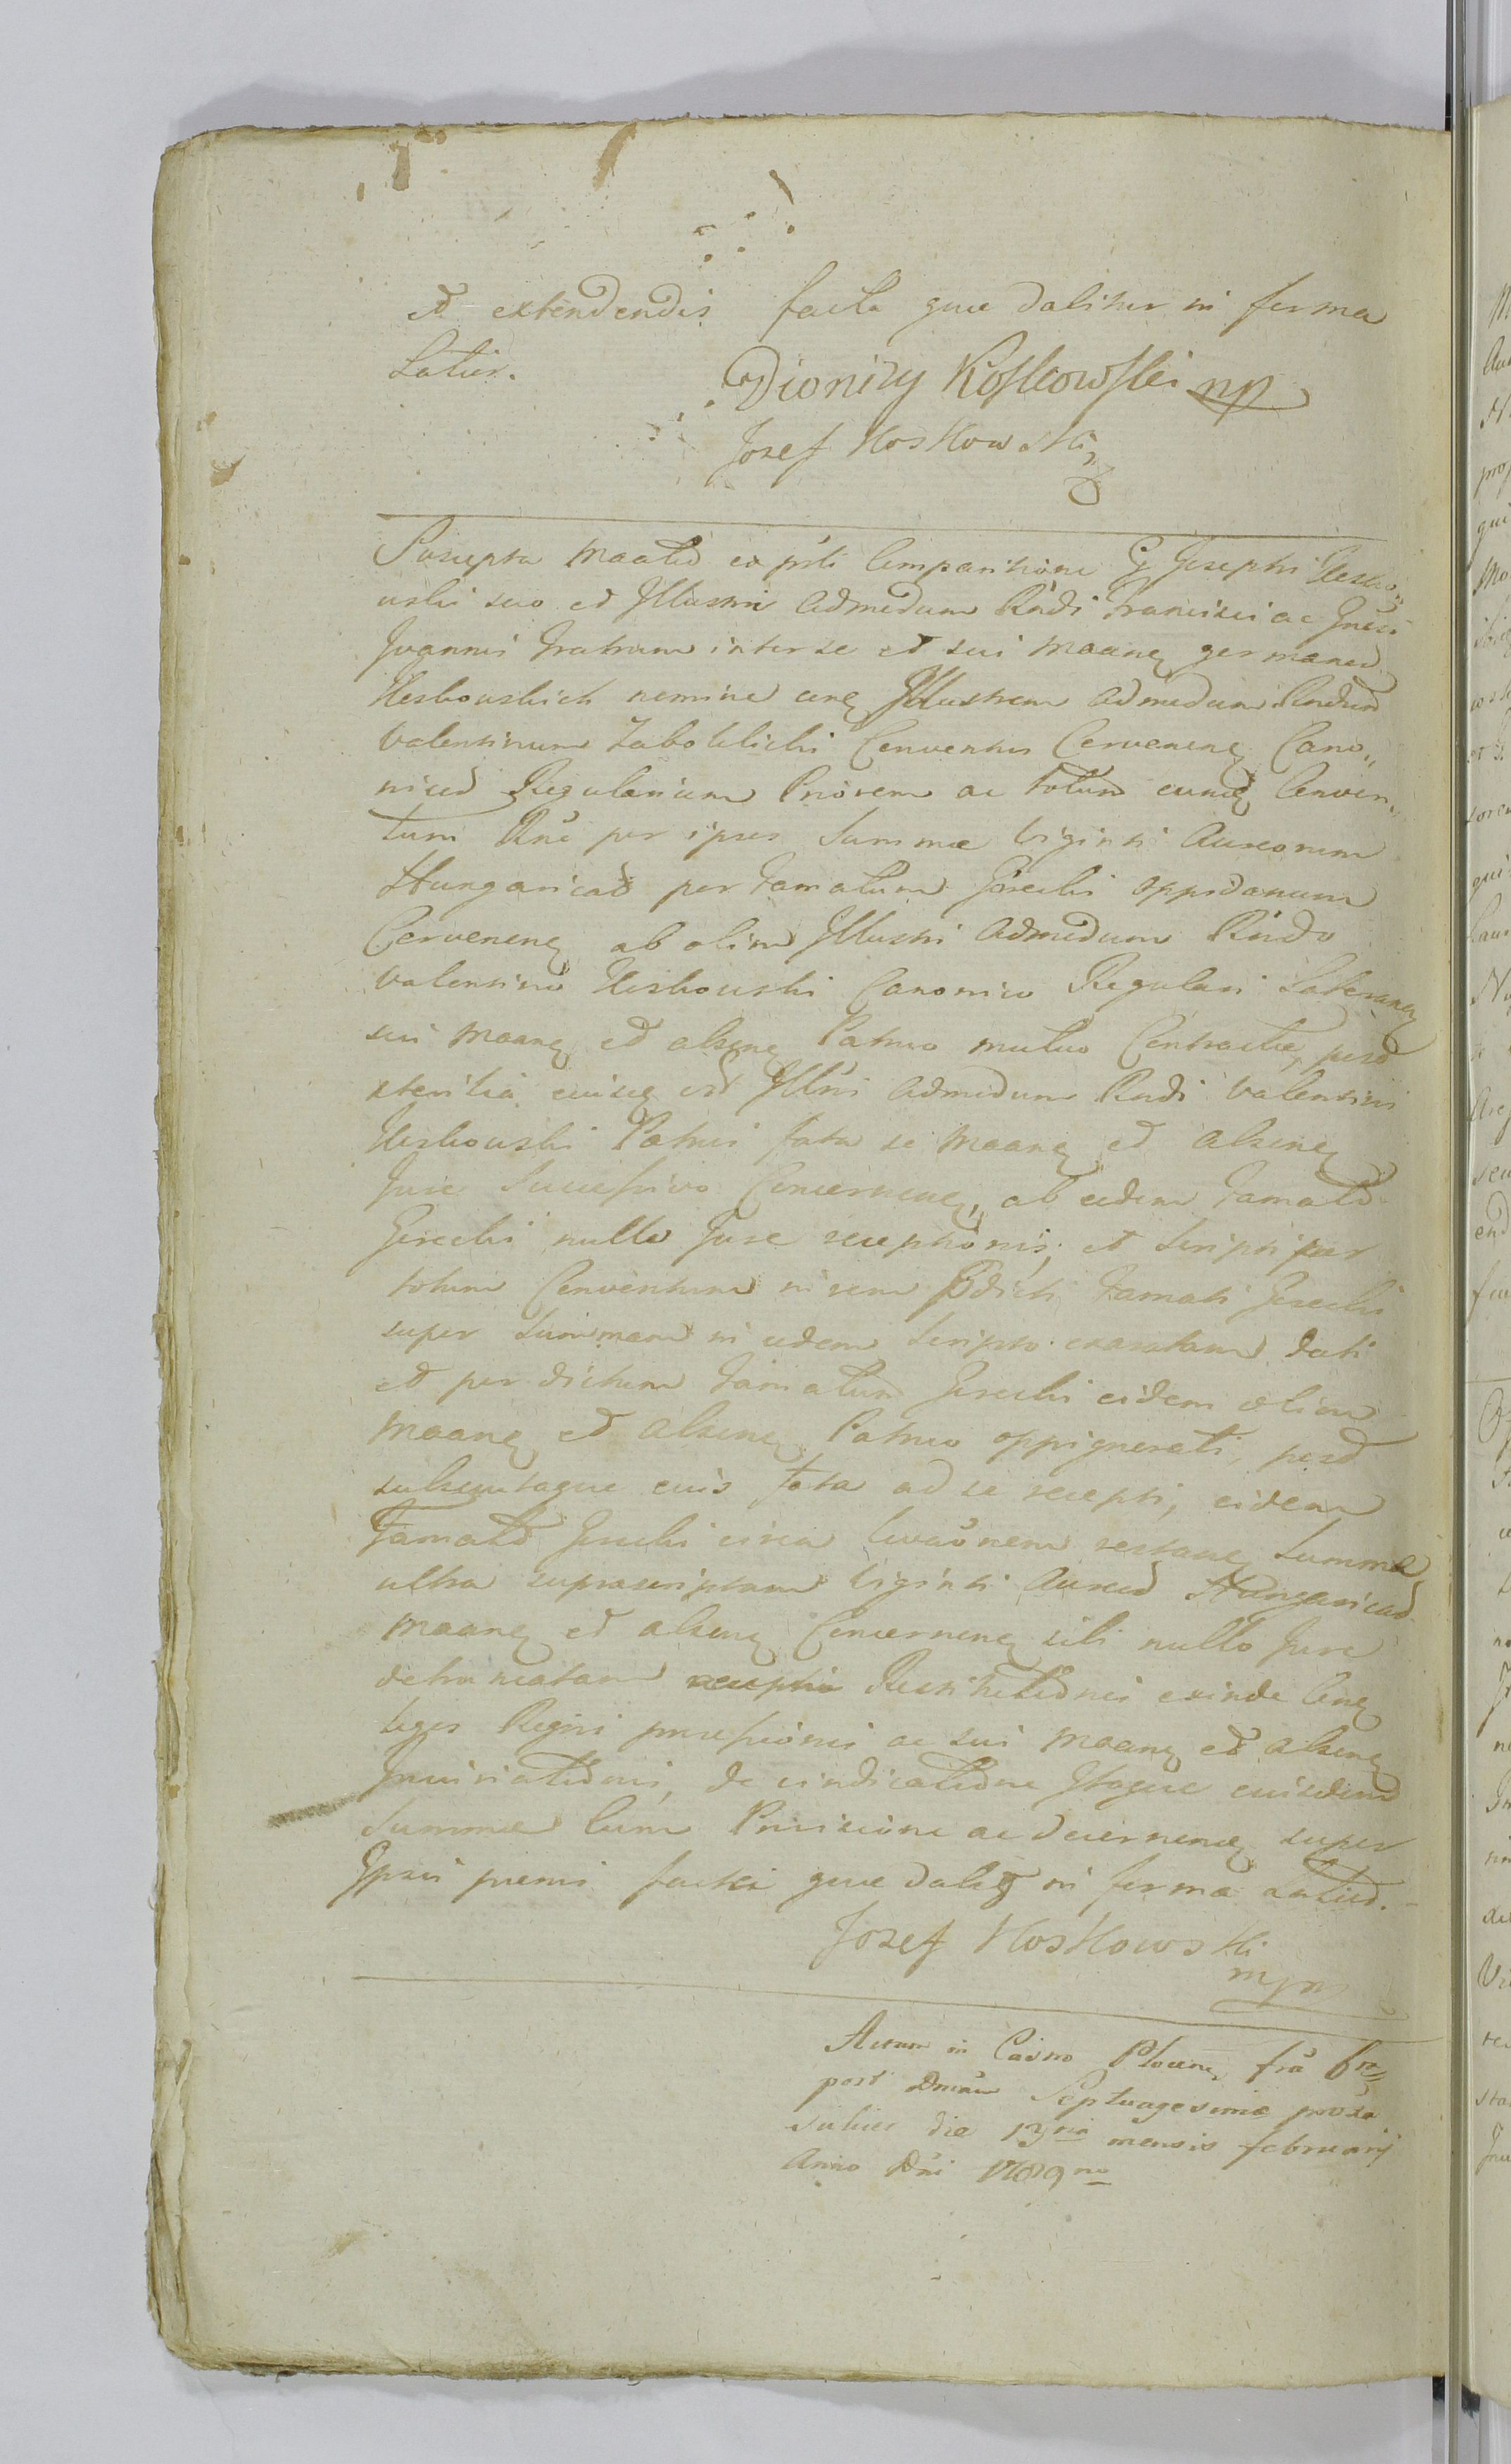 et extendendis facta quae dabitur in forma
Latior.
Dionizy Koskowski mp
Josef Koskowski
Suscepta Maātio ex pńti Comparitione G Josephi Kosko„
wski suo et Illustri Admodum Rńdi Francisci ac Gńsi
Joannis Fratrum inter se et sui Maaneq germanor
Koskowskich nomine cirq Illustrem Admodum Rndum
Valentinum Zaboklicki Conventus Cervenene Cano„
nicor Regularium Priorem ac totum eumq Conven„
tum Rńe per ipsos Summae Viginti Aureorum
Hungarical per famatum Górecki oppidanum
Cervenene ab olim Illustri Admodum Rńdo
Valentino Koskowski Canonico Regulari Lateranen
sui Maaneq et alsene Patruo mutuo Contractae, post
eiusq Illńi Admodum Rndi Valentini
Koskowski Patrui fata se Maaneq et Alsene
Jure Successivo Concernene, ab eodem Famato
Górecki nullo Jure receptionis, et Scripti per
totum Conventum in rem Pdicti Famati Górecki
super Summam in eodem Scripto exaratam dati
et per dictum Famatum Górecki eidem olim
Maaneq et Alsene Patruo oppignorati, post
subsecutaque eius fata ad se recepti, eidem
Famato Górecki circa levaōnem restane Summa
ultra suprascriptam Viginti Aureor Hungarical
Maaneq et alsene Concernene sibi nullo Jure
detruncatam Restitutionis exinde
leges Regni ac sui Maaneq et alsene
de vindicatione Itaque eiusdem
Summae Cum Provisione ac decernene super
Ipsis poenis facta quae dabitr in forma Latior.
Josef Koskowski
mpp
Actum in Castro Plocene fra 6ta
post Dmcam Septuagesimae proxa
siulicet die 13tia mensis februarij
Anno Dni 1789no